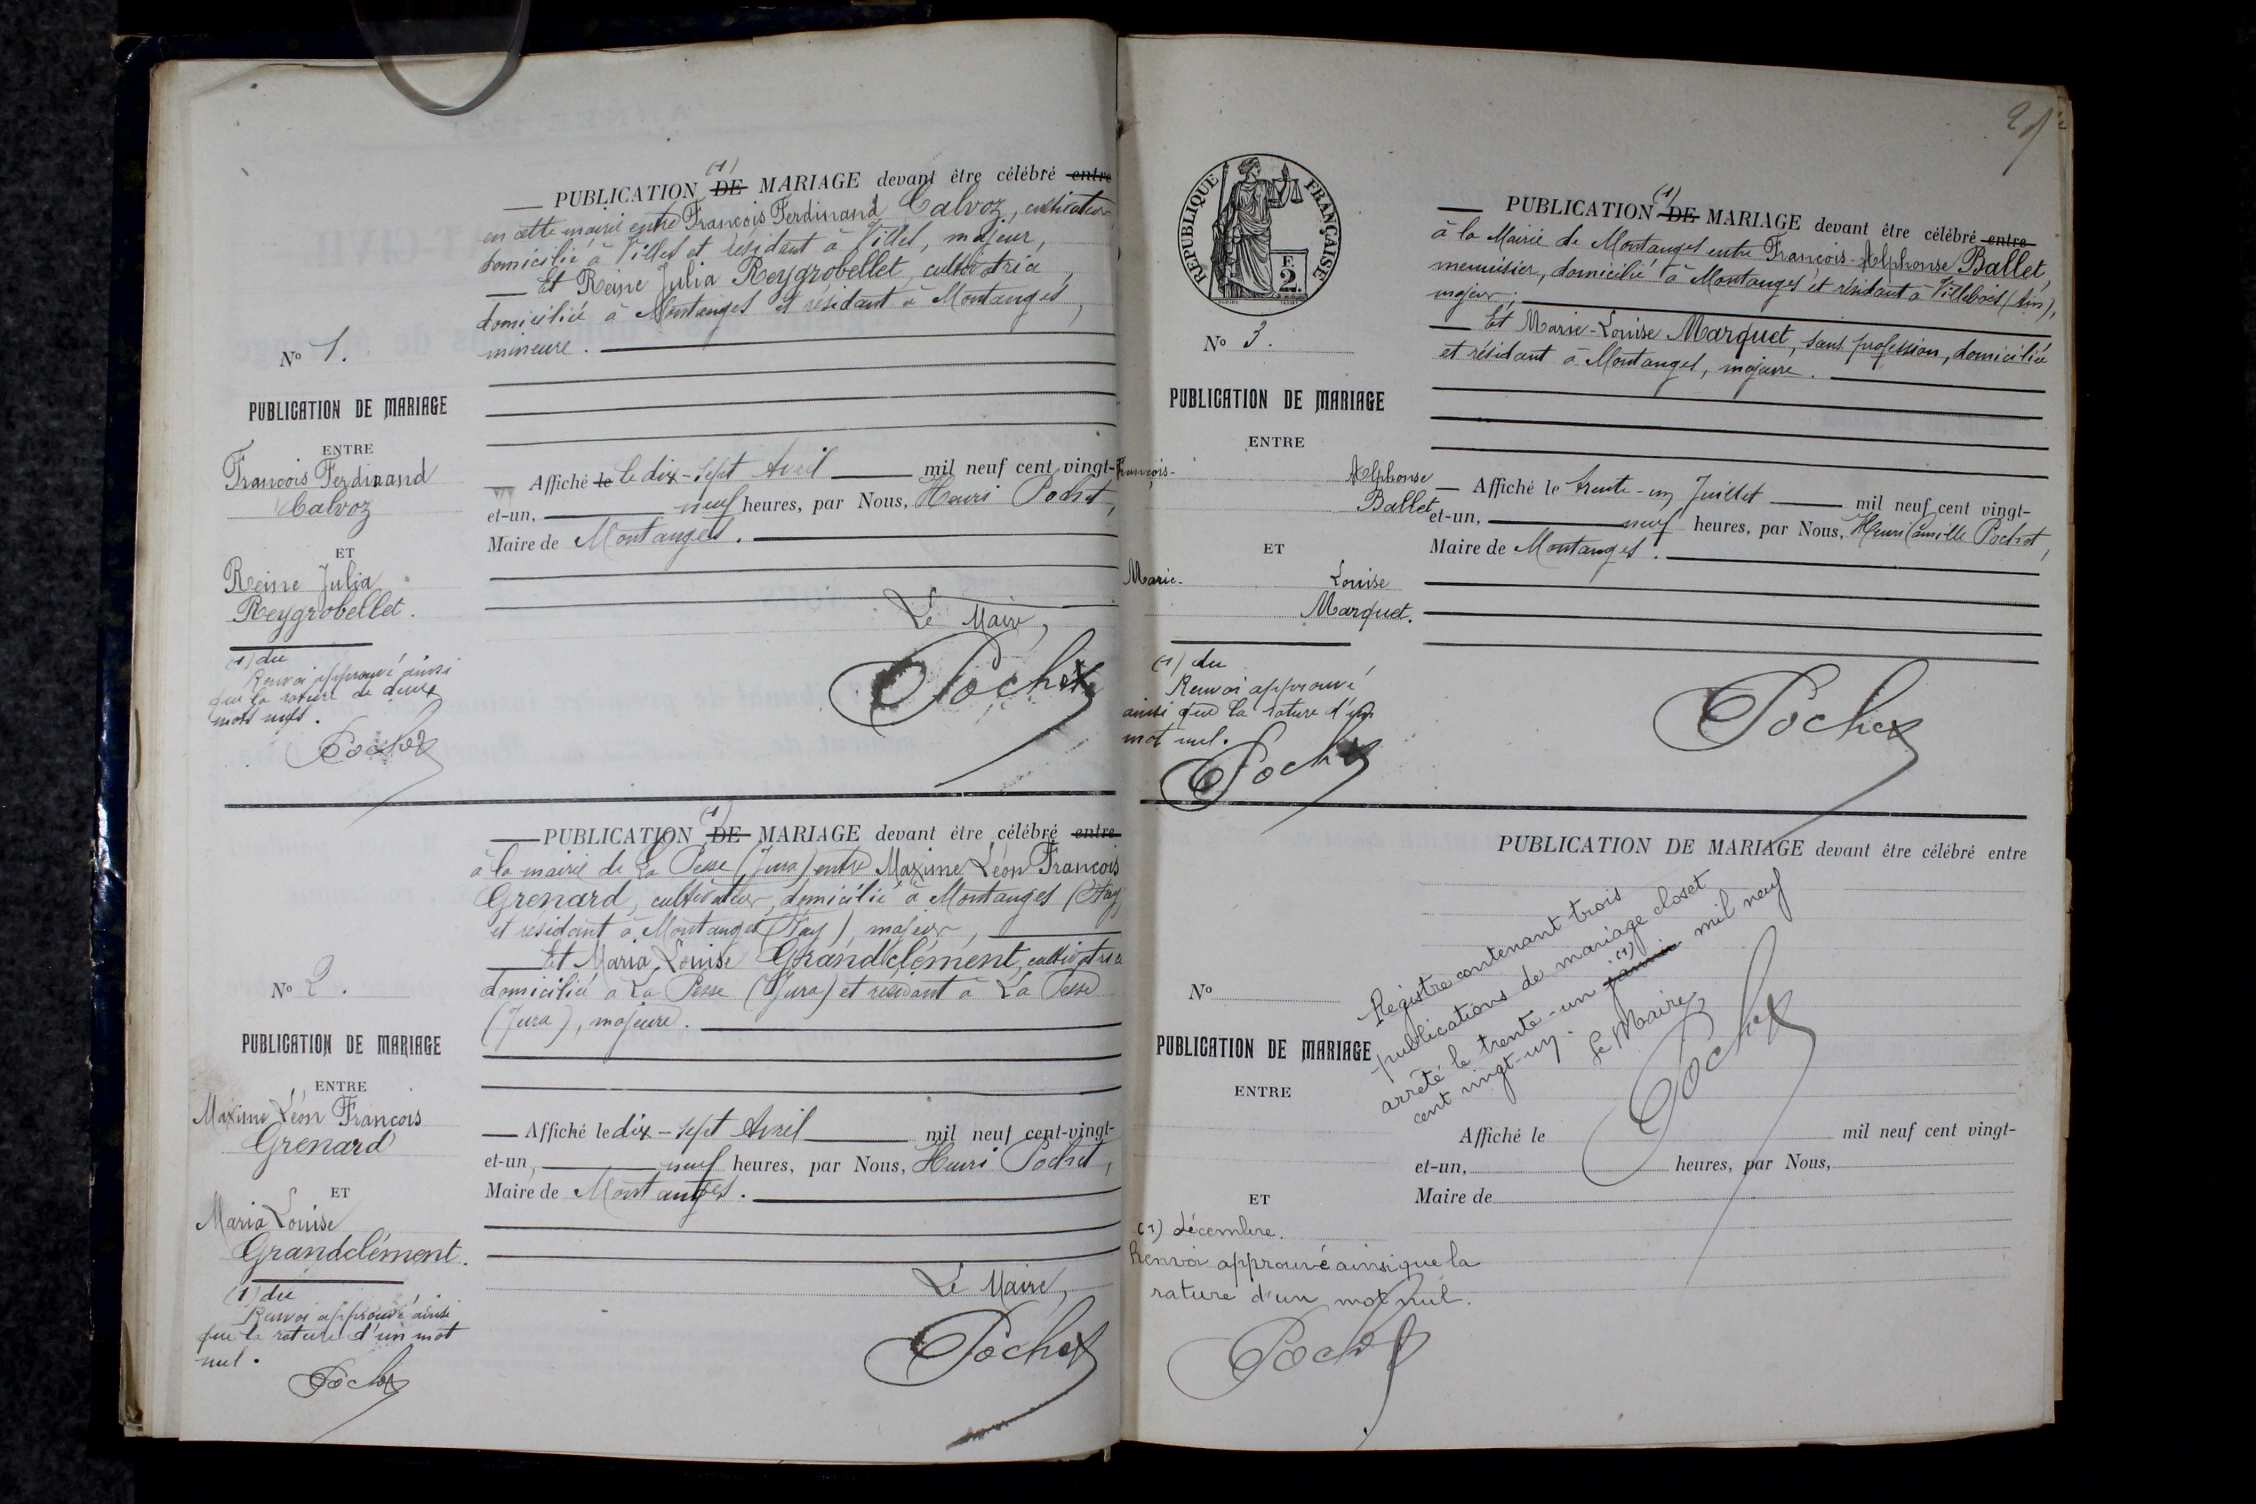 (1)
PUBLICATION DE MARIAGE devant être célébré entre
en cette mairie entre François Ferdinand Calvoz, cultivateur
domicilié à Villes et résidant à Villes, majeur,
Et Reine Julia Reygrobellet, cultivatrice,
domiciliée à Montanges et résidant à Montanges,
mineure.
N° 1.
PUBLICATION DE MARIAGE
ENTRE
François Ferdinand
Calvoz
ET
Reine Julia
Reygrobellet.
(1) du
Renvoi approuvé ainsi
que la rature de deux
mots nuls.
Pochet
Affiché le le dix-sept Avril mil neuf cent vingt-
et-un, neuf heures, par Nous, Henri Pochet,
Maire de Montanges.
Le Maire,
Pochet
(1)
PUBLICATION DE MARIAGE devant être célébré entre
à la mairie de La Pesse (Jura) entre Maxime Léon François
Grenard, cultivateur, domicilié à Montanges
et résidant à Montanges, majeur,
Et Maria Louise Grandclément, cultivatrice
domiciliée à La Pesse (Jura) et résidant à La Pesse
(Jura), majeure.
N° 2.
PUBLICATION DE MARIAGE
ENTRE
Maxime Léon François
Grenard
ET
Maria Louise
Grandclément.
(1) du
Renvoi approuvé ainsi
que la rature d'un mot
nul.
Pochet
Affiché le dix-sept Avril mil neuf cent-vingt-
et-un, neuf heures, par Nous, Henri Pochet,
Maire de Montanges.
Le Maire,
Pochet
2
RÉPUBLIQUE FRANÇAISE
2 F.
(1)
PUBLICATION DE MARIAGE devant être célébré entre
à la Mairie de Montanges entre François-Alphonse Ballet,
menuisier, domicilié à Montanges et résidant à Villebois (Ain),
majeur;
Et Marie-Louise Marquet, sans profession, domiciliée
et résidant à Montanges, majeure.
N° 3.
PUBLICATION DE MARIAGE
ENTRE
François-
Alphonse
Ballet
ET
Marie-
Louise
Marquet.
(1) du
Renvoi approuvé
ainsi que la rature d'un
mot nul.
Pochet
Affiché le trente-un Juillet mil neuf cent vingt-
et-un, neuf heures, par Nous, Henri Camille Pochet,
Maire de Montanges.
Pochet
PUBLICATION DE MARIAGE devant être célébré entre
Registre contenant trois
publications de mariage clos et
(1)
arrêté le trente-un janvier mil neuf
cent vingt-un.
Le Maire,
Pochet
N°
PUBLICATION DE MARIAGE
ENTRE
ET
Affiché le mil neuf cent vingt-
et-un, heures, par Nous,
Maire de
(1) décembre.
Renvoi approuvé ainsi que la
rature d'un mot nul.
Pochet